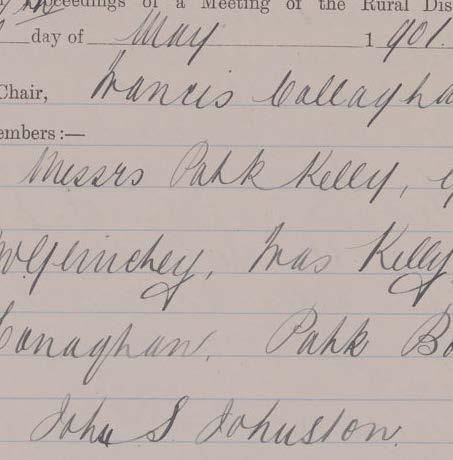 Proceedings of a Meeting of the Rural Dis
day of May 1901.
Chair, Francis Callagha
embers:—
Messrs Patk Kelly,
McGlinchey, Fras Kelly
Conaghan, Patk Bo
John S. Johnston.